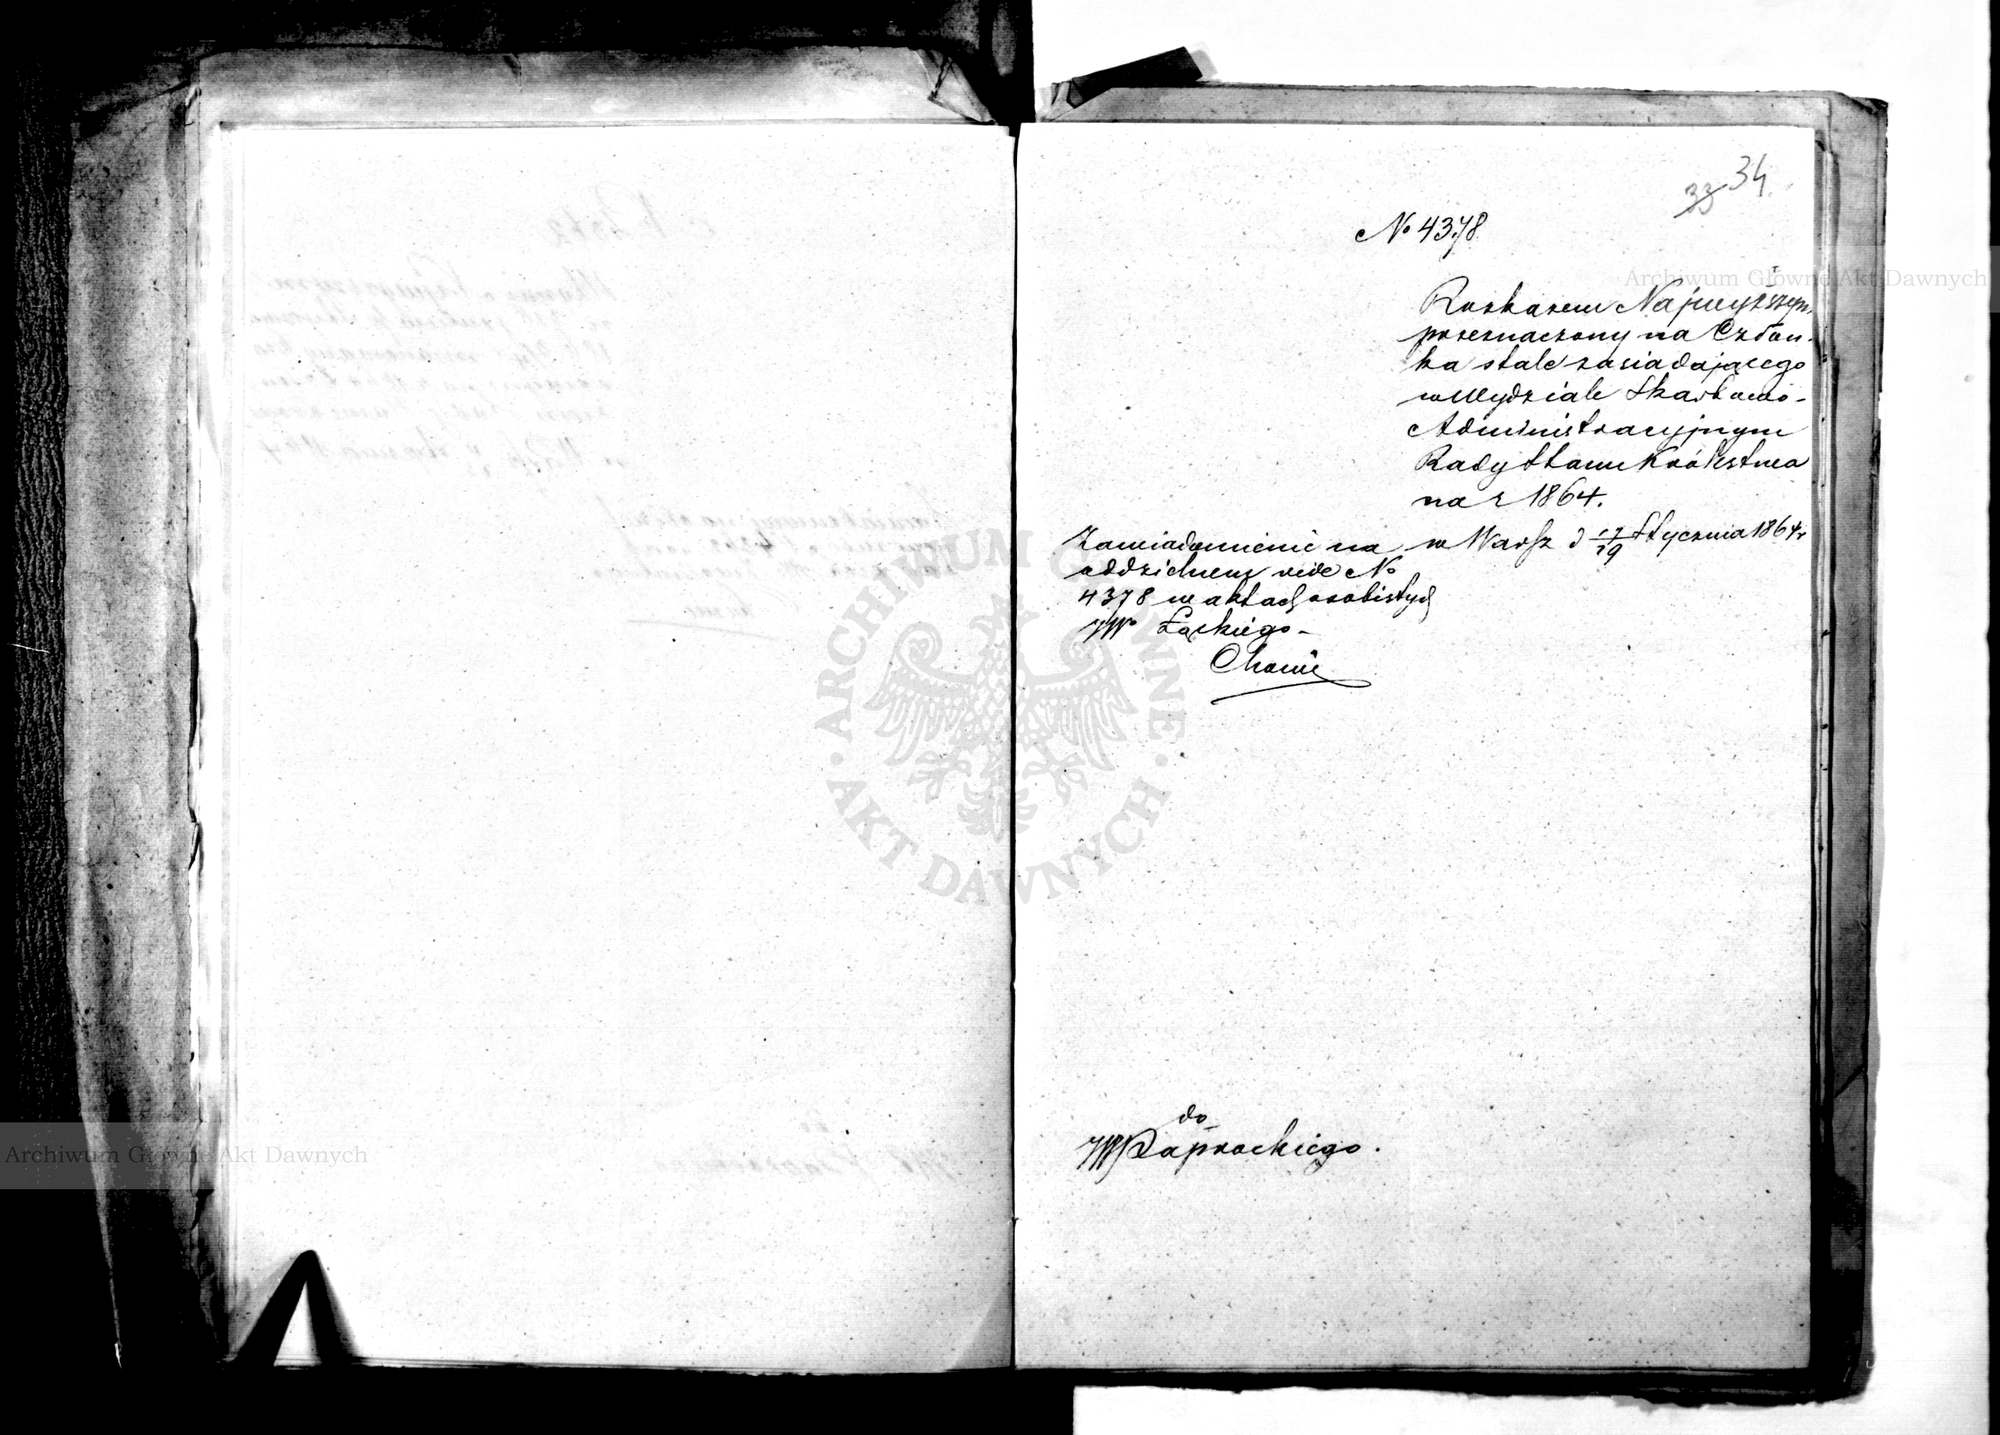 33 34.
№ 4378
Rozkazem Najwyższym
przeznaczony na Człon-
ka stale zasiadającego
w Wydziale Skarbowo-
Administracyjnym
Rady Stanu Królestwa
na r 1864.
w Warsz d 17/29 Stycznia 1864 r
Zawiadomienie na
oddzielnem vide No
4378 w aktach osobistych
JW° Łąckiego –
do
JW Paprockiego.
Archiwum Główne Akt Dawnych
Archiwum Główne Akt Dawnych
ARCHIWUM GŁÓWNE · AKT DAWNYCH ·